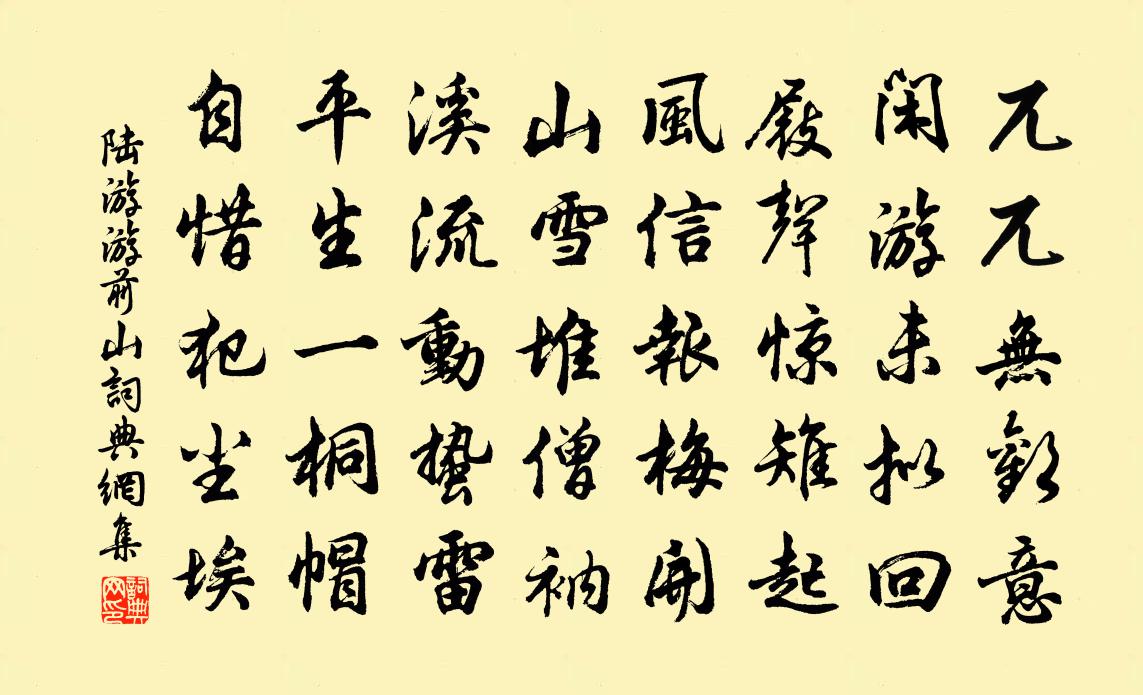 兀兀無歡意
閑游未拟回
屐聲惊雉起
風信報梅開
山雪堆僧衲
溪流動蛰雷
平生一桐帽
自惜犯尘埃
陆游游前山詞典網集
詞典网印